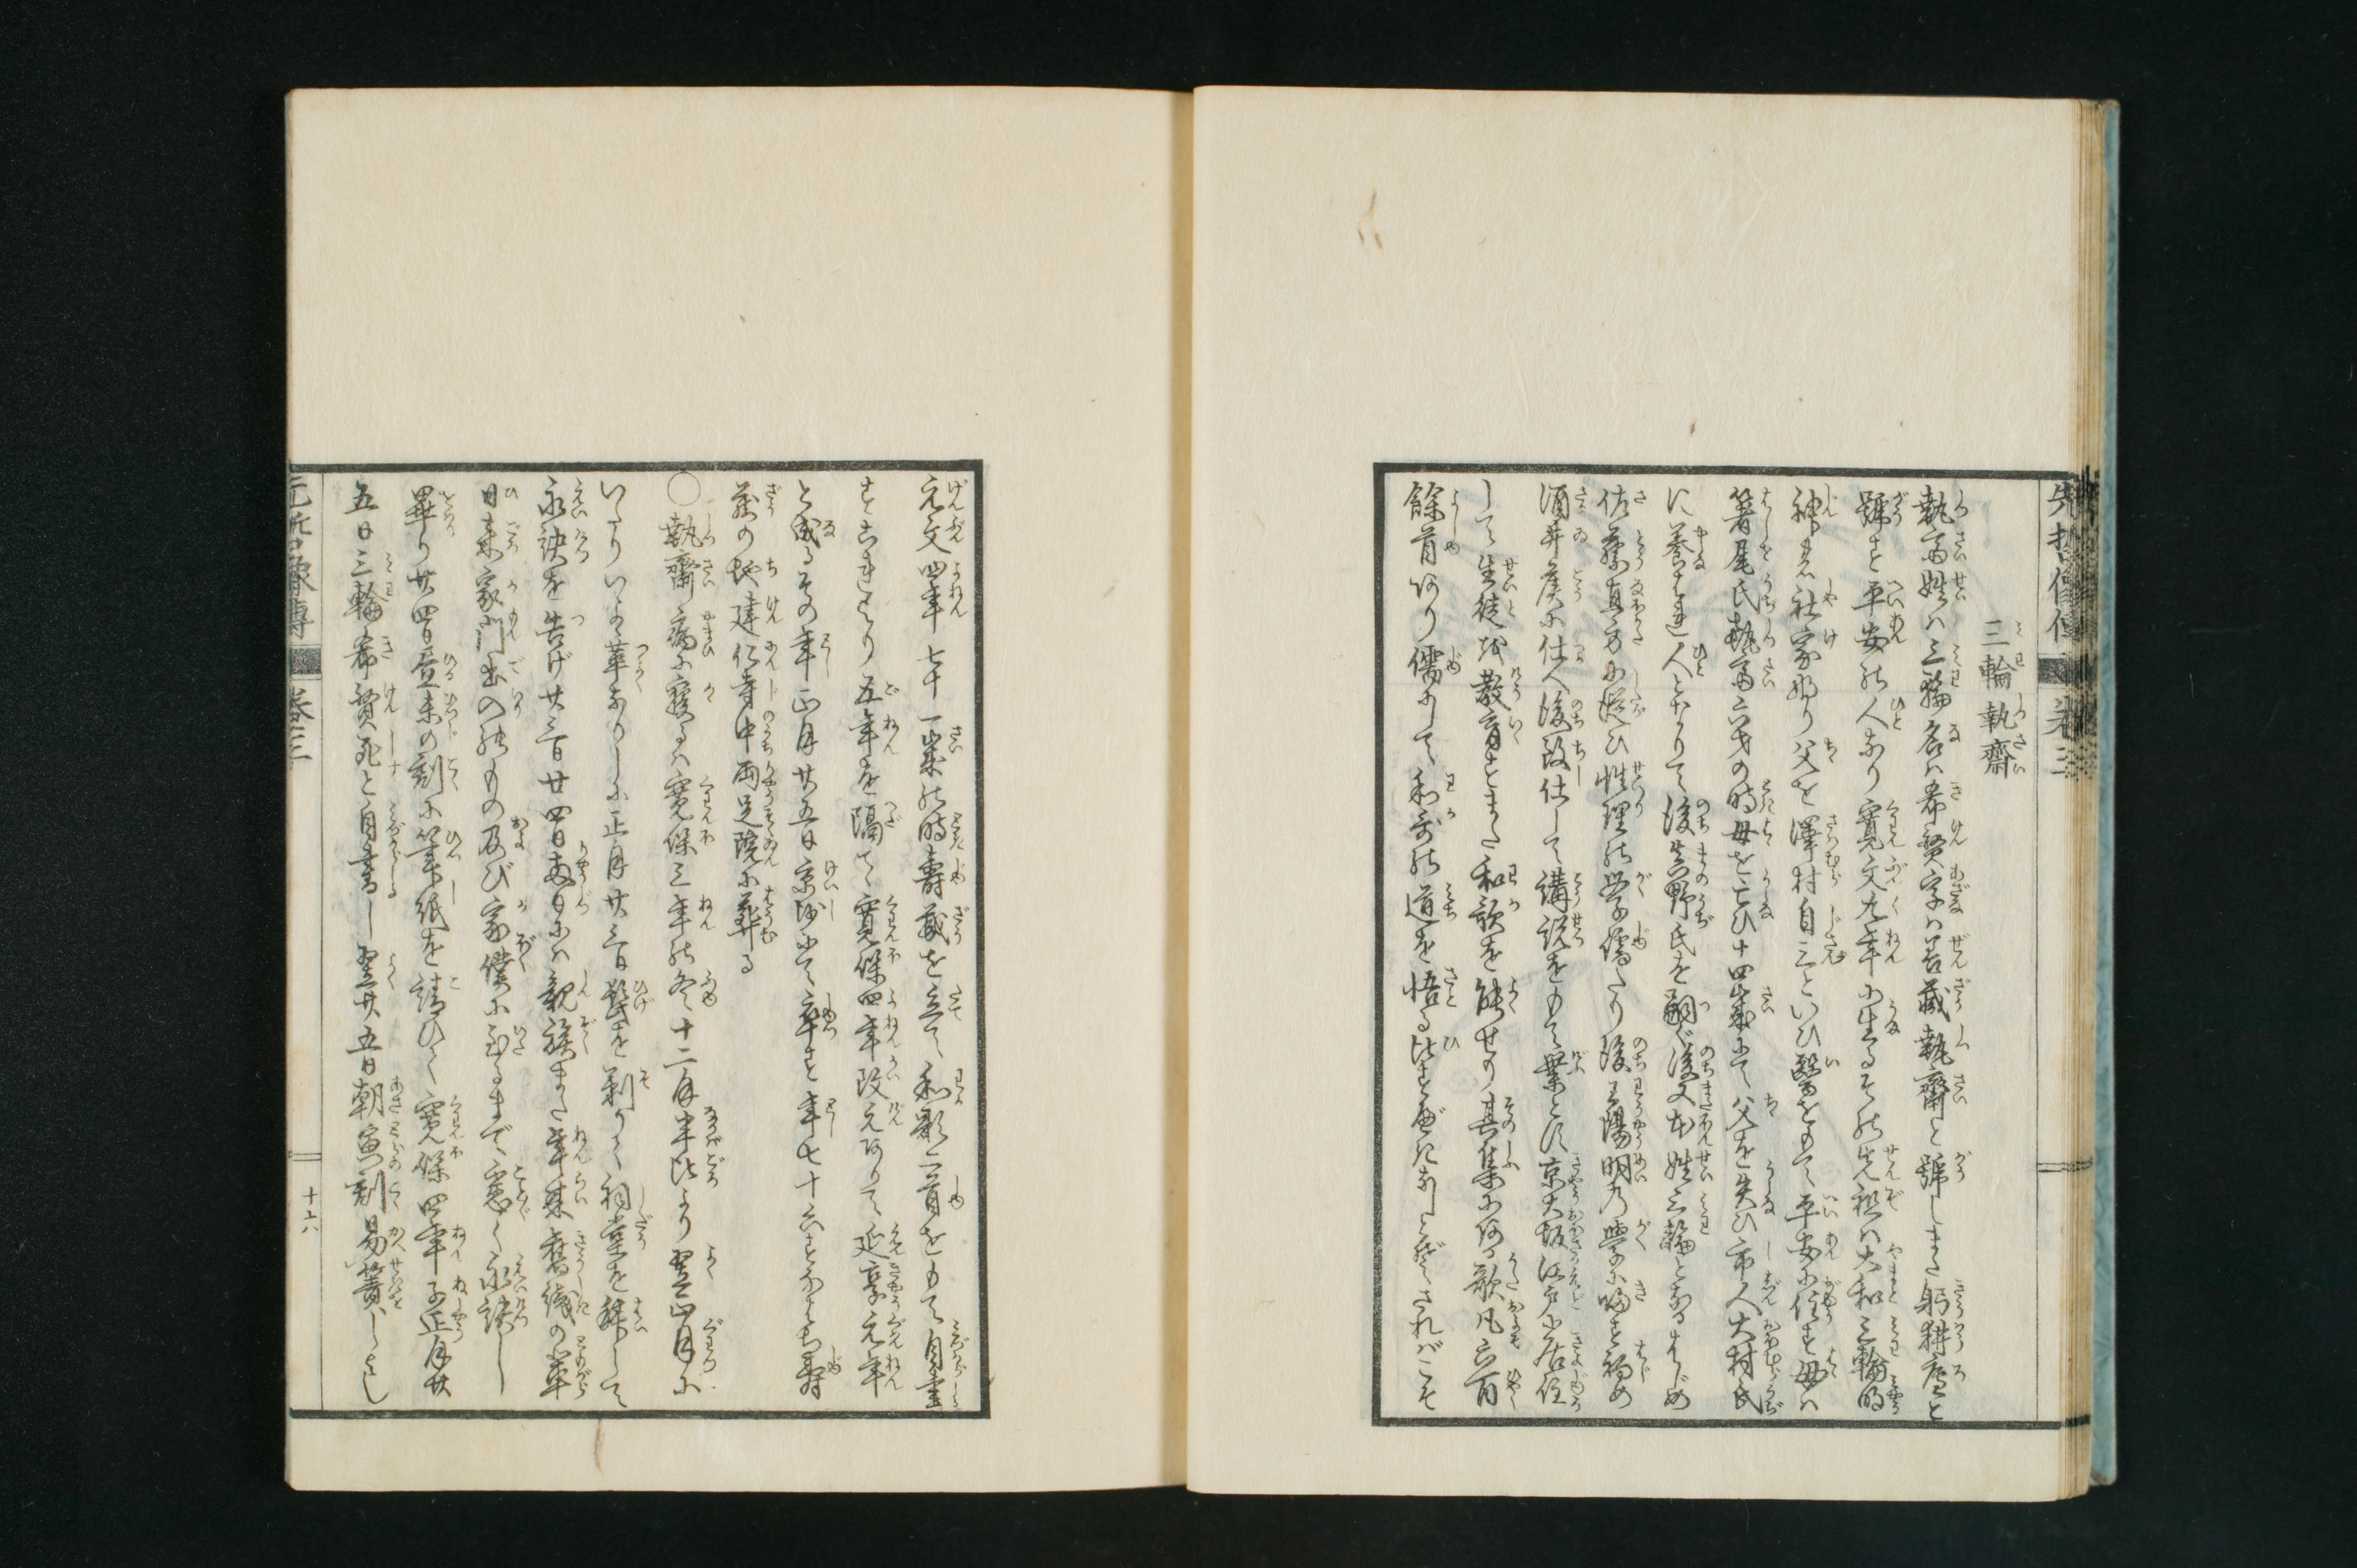 先哲像傳 卷三
三輪執齋
執齋姓ハ三輪名ハ希賢字ハ善藏執齋と號しまた躬耕廬と
號す平安の人なり寛文九年に生るその先祖ハ大和三輪の
神社家なり父を澤村自三といひ醫をもて平安に住す母ハ
箸尾氏執齋六才の時母を亡ひ十四歳にて父を失ひ市人大村氏
に養はれ人となりて後真野氏を嗣ぐ後又本姓三輪となるはじめ
佐藤直方に從ひ性理の学を脩たり後王陽明の學に歸す初め
酒井侯に仕へ後致仕して講説をもて業とす京大坂江戸に居住
して生徒を教育すまた和歌を能せり其集に載る歌凡六百
餘首あり儒にして和哥の道を悟る比すべきなしとぞされバこそ
元文四年七十一歳の時壽藏を立て和歌六首をもて自書
すこれより五年を隔て寛保四年改元ありて延享元年
と成るその年正月廿五日京師にて卒す年七十六すなはち壽
藏の地建仁寺中両足院に葬る
○執齋病に寢るハ寛保三年の冬十二月半比より翌正月に
いたりいよ〳〵革なりしに正月廿三日髭を剃りて祠堂を拜して
永訣を告げ廿三日廿四日両日にハ親族また年来舊識の輩
日来家門出入のもの及び家僕に至るまで悉く永訣し
畢り廿四日晝未の刻に筆紙を請ひて寛保四年子正月廿
五日三輪希賢死と自書し翌廿五日朝寅刻易簀しとよし
先哲像傳 卷三 十六